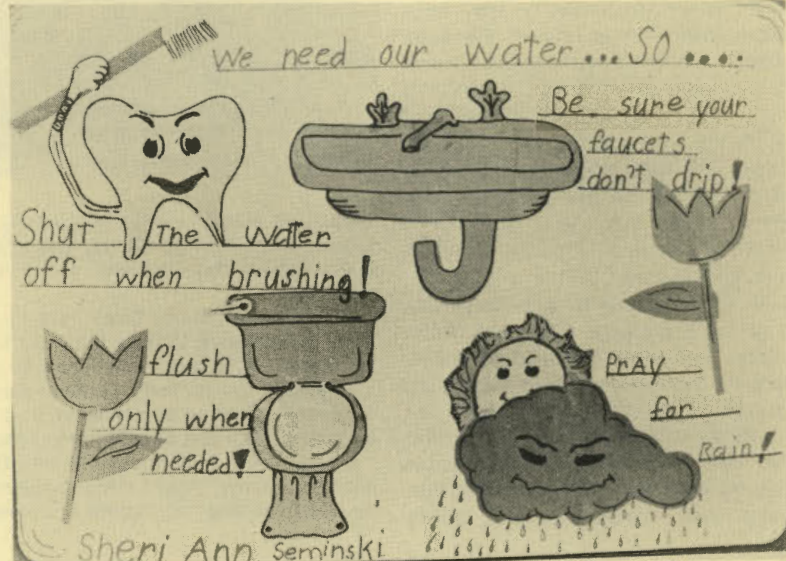 We need our water... So ....
Be sure your
faucets
don't drip!
Shut The Water
off when brushing!
flush
only when
needed!
Pray
for
Rain!
Sheri Ann Seminski